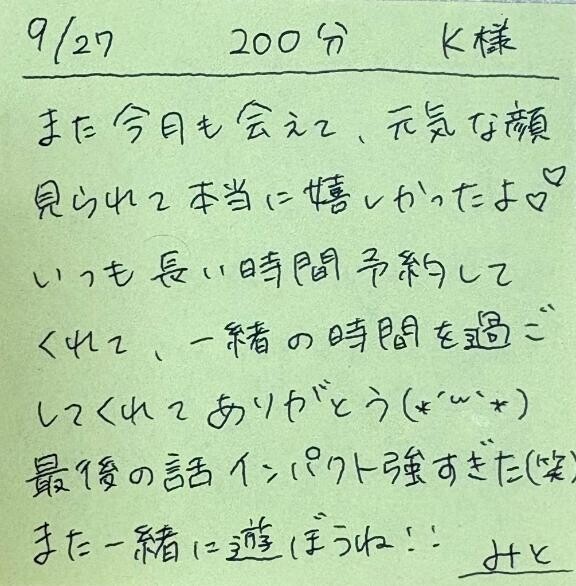 9/27 200分 K様
また今月も会えて、元気な顔
見られて本当に嬉しかったよ♡♡
いつも長い時間予約して
くれて、一緒の時間を過ご
してくれてありがとう(*´ω`*)
最後の話インパクト強すぎた(笑)
また一緒に遊ぼうね!!
みと